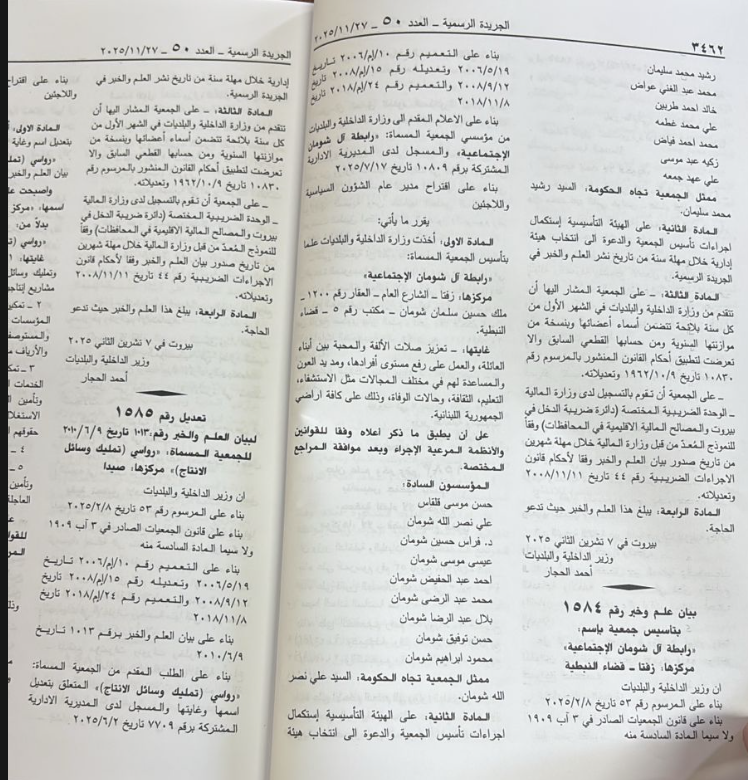 ٣٤٦٢
الجريدة الرسمية ـ العدد ٥٠ ـ ٢٠٢٥/١١/٢٧
رشيد محمد سليمان
محمد عبد الغني عواض
خالد احمد طربين
علي محمد غطمه
محمد احمد فياض
زكيه عبد موسى
علي عهد جمعه
ممثل الجمعية تجاه الحكومة: السيد رشيد
محمد سليمان.
المادة الثانية: ـ على الهيئة التأسيسية إستكمال
اجراءات تأسيس الجمعية والدعوة الى انتخاب هيئة
إدارية خلال مهلة سنة من تاريخ نشر العلم والخبر في
الجريدة الرسمية.
المادة الثالثة: ـ على الجمعية المشار اليها أن
تتقدم من وزارة الداخلية والبلديات في الشهر الأول من
كل سنة بلائحة تتضمن أسماء أعضائها وبنسخة من
موازنتها السنوية ومن حسابها القطعي السابق والا
تعرضت لتطبيق أحكام القانون المنشور بالمرسوم رقم
١٠٨٣٠ تاريخ ١٩٦٢/١٠/٩ وتعديلاته.
ـ على الجمعية أن تقوم بالتسجيل لدى وزارة المالية
ـ الوحدة الضريبية المختصة (دائرة ضريبة الدخل في
بيروت والمصالح المالية الاقليمية في المحافظات) وفقاً
للنموذج المُعدّ من قبل وزارة المالية خلال مهلة شهرين
من تاريخ صدور بيان العلم والخبر وفقا لأحكام قانون
الاجراءات الضريبية رقم ٤٤ تاريخ ٢٠٠٨/١١/١١
وتعديلاته.
المادة الرابعة: يبلغ هذا العلم والخبر حيث تدعو
الحاجة.
بيروت في ٧ تشرين الثاني ٢٠٢٥
وزير الداخلية والبلديات
أحمد الحجار
بيان علم وخبر رقم ١٥٨٤
بتأسيس جمعية بإسم:
«رابطة آل شومان الإجتماعية»
مركزها: زفتا ـ قضاء النبطية
ان وزير الداخلية والبلديات
بناء على المرسوم رقم ٥٣ تاريخ ٢٠٢٥/٢/٨
بناء على قانون الجمعيات الصادر في ٣ آب ١٩٠٩
ولا سيما المادة السادسة منه
بناء على التعميم رقم ١٠/إم/٢٠٠٦ تاريخ
٢٠٠٦/٥/١٩ وتعديله رقم ١٥/إم/٢٠٠٨ تاريخ
٢٠٠٨/٩/١٢ والتعميم رقم ٢٤/إم/٢٠١٨ تاريخ
٢٠١٨/١١/٨
بناء على الاعلام المقدم الى وزارة الداخلية والبلديات
من مؤسسي الجمعية المسماة: «رابطة آل شومان
الإجتماعية»، والمسجل لدى المديرية الادارية
المشتركة برقم ١٠٨٠٩ تاريخ ٢٠٢٥/٧/١٧
بناء على اقتراح مدير عام الشؤون السياسية
واللاجئين
يقرر ما يأتي:
المادة الاولى: أخذت وزارة الداخلية والبلديات علما
بتأسيس الجمعية المسماة:
«رابطة آل شومان الإجتماعية»
مركزها: زفتا ـ الشارع العام ـ العقار رقم ١٢٠٠ ـ
ملك حسين سلمان شومان ـ مكتب رقم ٥ ـ قضاء
النبطية.
غايتها: ـ تعزيز صلات الألفة والمحبة بين أبناء
العائلة، والعمل على رفع مستوى أفرادها، ومد يد العون
والمساعدة لهم في مختلف المجالات مثل الاستشفاء،
التعليم، الثقافة، وحالات الوفاة، وذلك على كافة اراضي
الجمهورية اللبنانية.
على أن يطبق ما ذكر أعلاه وفقا للقوانين
والأنظمة المرعية الإجراء وبعد موافقة المراجع
المختصة.
المؤسسون السادة:
حسن موسى قلقاس
علي نصر الله شومان
د. فراس حسين شومان
عيسى موسى شومان
احمد عبد الحفيض شومان
محمد عبد الرضى شومان
بلال عبد الرضا شومان
حسن توفيق شومان
محمود ابراهيم شومان
ممثل الجمعية تجاه الحكومة: السيد علي نصر
الله شومان.
المادة الثانية: على الهيئة التأسيسية إستكمال
اجراءات تأسيس الجمعية والدعوة الى انتخاب هيئة
الجريدة الرسمية ـ العدد ٥٠ ـ ٢٠٢٥/١١/٢٧
إدارية خلال مهلة سنة من تاريخ نشر العلم والخبر في
الجريدة الرسمية.
المادة الثالثة: ـ على الجمعية المشار اليها أن
تتقدم من وزارة الداخلية والبلديات في الشهر الأول من
كل سنة بلائحة تتضمن أسماء أعضائها وبنسخة من
موازنتها السنوية ومن حسابها القطعي السابق والا
تعرضت لتطبيق أحكام القانون المنشور بالمرسوم رقم
١٠٨٣٠ تاريخ ١٩٦٢/١٠/٩ وتعديلاته.
ـ على الجمعية أن تقوم بالتسجيل لدى وزارة المالية
ـ الوحدة الضريبية المختصة (دائرة ضريبة الدخل في
بيروت والمصالح المالية الاقليمية في المحافظات) وفقاً
للنموذج المُعدّ من قبل وزارة المالية خلال مهلة شهرين
من تاريخ صدور بيان العلم والخبر وفقا لأحكام قانون
الاجراءات الضريبية رقم ٤٤ تاريخ ٢٠٠٨/١١/١١
وتعديلاته.
المادة الرابعة: يبلغ هذا العلم والخبر حيث تدعو
الحاجة.
بيروت في ٧ تشرين الثاني ٢٠٢٥
وزير الداخلية والبلديات
أحمد الحجار
تعديل رقم ١٥٨٥
لبيان العلم والخبر رقم: ١٠١٣ تاريخ ٢٠١٠/٦/٩
للجمعية المسماة: «رواسي (تمليك وسائل
الانتاج)» مركزها: صيدا
ان وزير الداخلية والبلديات
بناء على المرسوم رقم ٥٣ تاريخ ٢٠٢٥/٢/٨
بناء على قانون الجمعيات الصادر في ٣ آب ١٩٠٩
ولا سيما المادة السادسة منه
بناء على التعميم رقم ١٠/إم/٢٠٠٦ تاريخ
٢٠٠٦/٥/١٩ وتعديله رقم ١٥/إم/٢٠٠٨ تاريخ
٢٠٠٨/٩/١٢ والتعميم رقم ٢٤/إم/٢٠١٨ تاريخ
٢٠١٨/١١/٨
بناء على بيان العلم والخبر برقم ١٠١٣ تاريخ
٢٠١٠/٦/٩
بناء على الطلب المقدم من الجمعية المسماة:
«رواسي (تمليك وسائل الانتاج)» المتعلق بتعديل
اسمها وغايتها والمسجل لدى المديرية الادارية
المشتركة برقم ٧٧٠٩ تاريخ ٢٠٢٥/٦/٢
بناء على اقتراح
واللاجئين
المادة الاولى:
بتعديل اسم وغاية
«رواسي (تمليك
بيان العلم والخبر
واصبحت
اسمها: «مركز
بدلاً من:
«رواسي (تـ
غايتها: ١
وتمليك وسائل
مشاريع إنتاجية
٢ ـ تمكين
المؤسسات
والمستوصف
والأرياف
٣ ـ تمكـ
الخدمات
وتأمين
الاستغلال
حقوقهم
٤ ـ
٥ ـ
وتأمين
العاجلة
للقوانـ